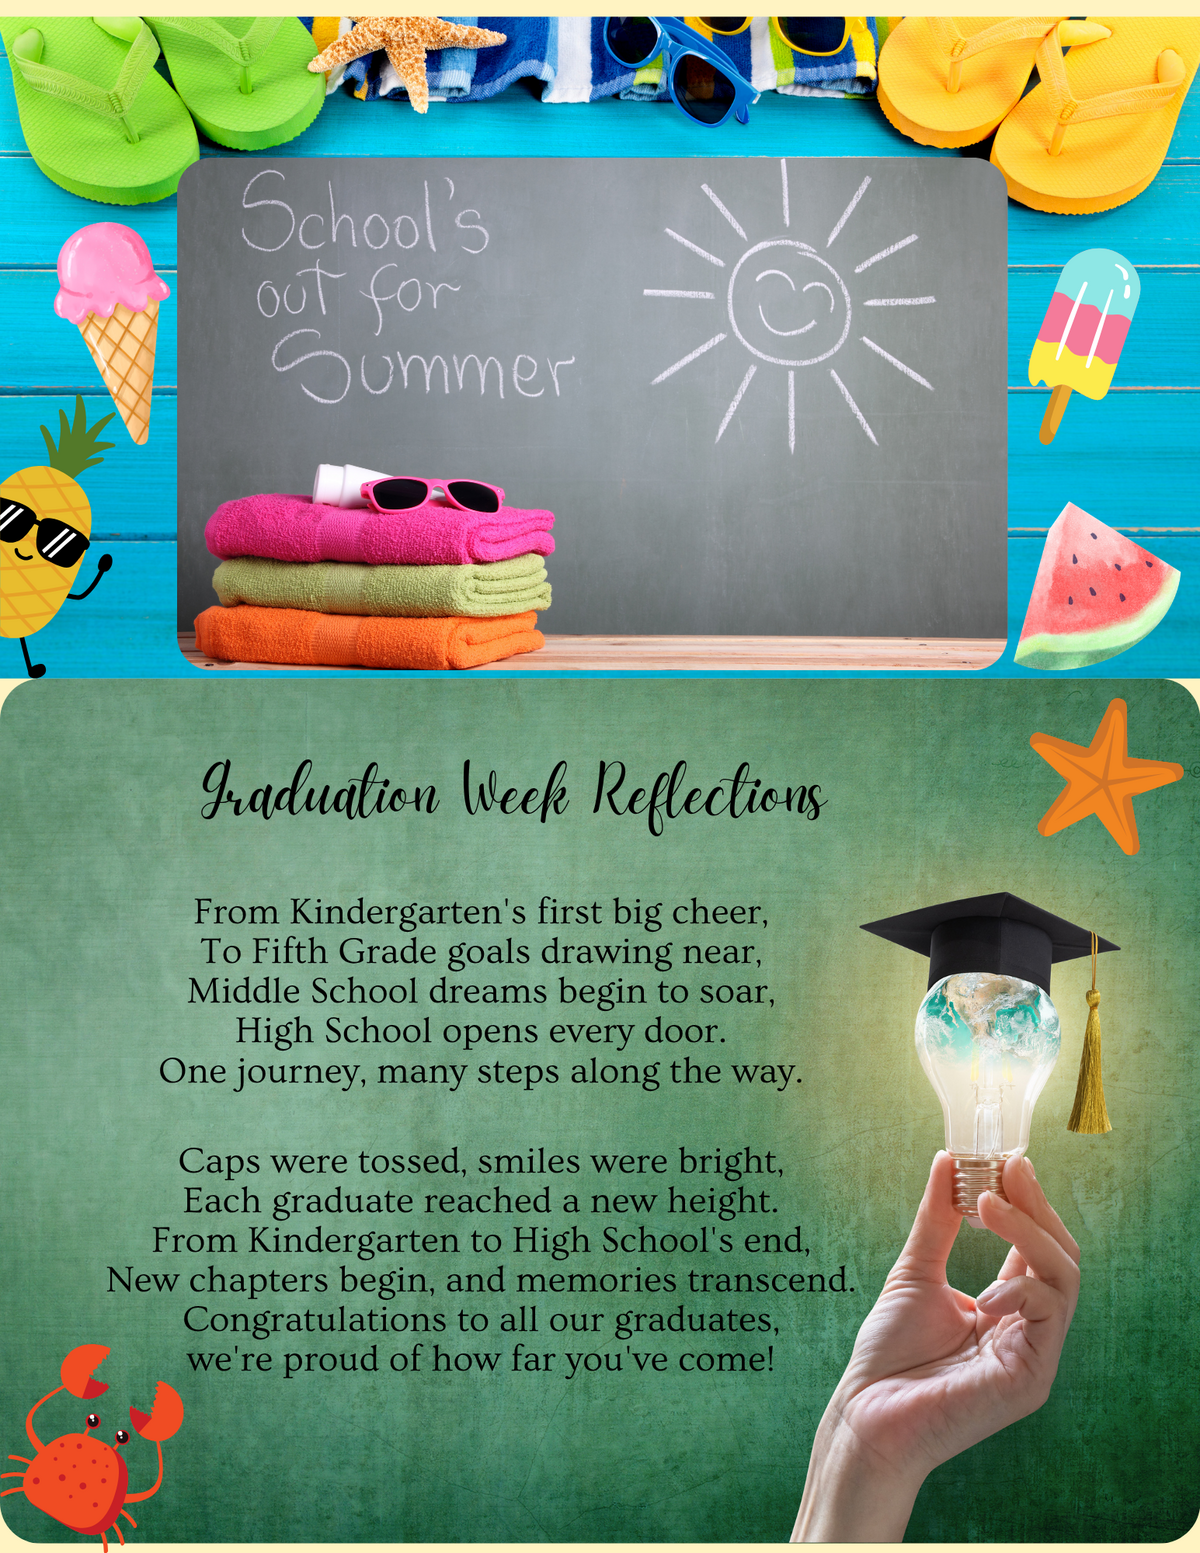 School's
out for
Summer
Graduation Week Reflections
From Kindergarten's first big cheer,
To Fifth Grade goals drawing near,
Middle School dreams begin to soar,
High School opens every door.
One journey, many steps along the way.
Caps were tossed, smiles were bright,
Each graduate reached a new height.
From Kindergarten to High School's end,
New chapters begin, and memories transcend.
Congratulations to all our graduates,
we're proud of how far you've come!